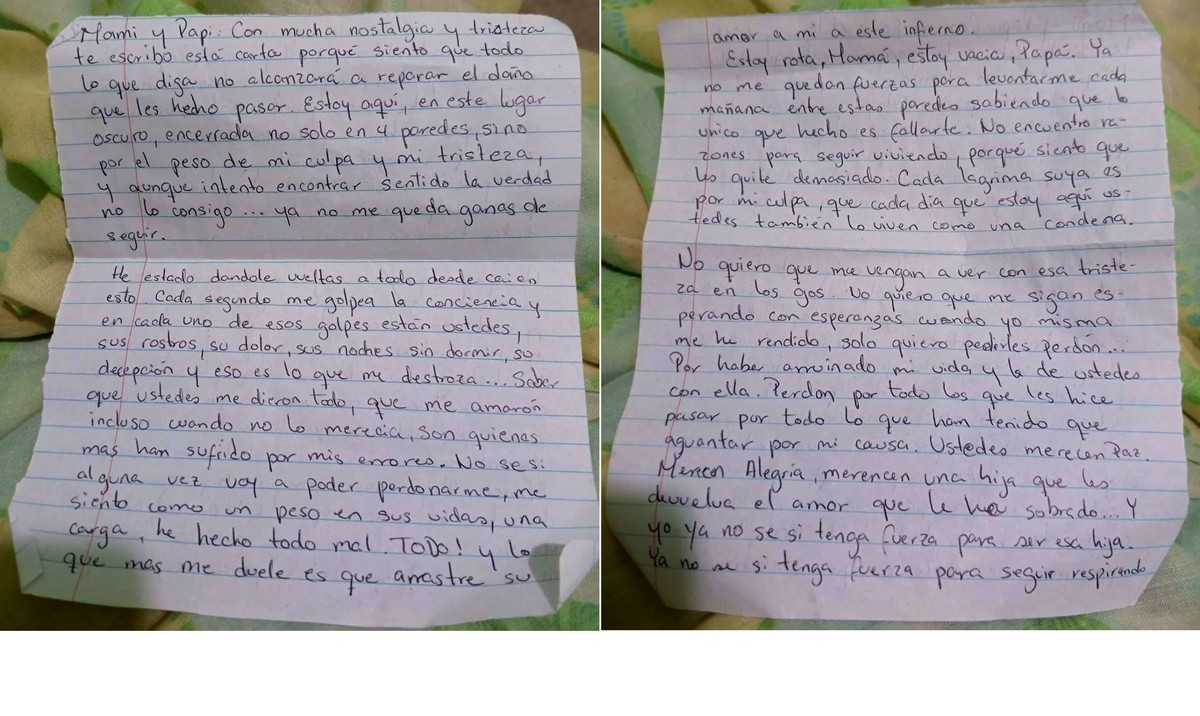 Mami y Papi: Con mucha nostalgia y tristeza
te escribo está carta porqué siento que todo
lo que diga no alcanzará a reparar el daño
que les hecho pasar. Estoy aquí, en este lugar
oscuro, encerrada no solo en 4 paredes, sino
por el peso de mi culpa y mi tristeza,
y aunque intento encontrar sentido la verdad
no lo consigo... ya no me queda ganas de
seguir.
He estado dandole vueltas a todo desde cai en
esto. Cada segundo me golpea la conciencia y
en cada uno de esos golpes están ustedes,
sus rostros, su dolor, sus noches sin dormir, su
decepción y eso es lo que me destroza... Saber
que ustedes me dieron todo, que me amarón
incluso cuando no lo merecia, son quienes
mas han sufrido por mis errores. No se si
alguna vez voy a poder perdonarme, me
siento como un peso en sus vidas, una
carga, he hecho todo mal. TODO! y lo
que mas me duele es que arrastre su
amor a mi a este inferno.
Estoy rota, Mamá, estoy vacia, Papá. Ya
no me quedan fuerzas para levantarme cada
mañana entre estas paredes sabiendo que lo
unico que hecho es fallarte. No encuentro ra-
zones para seguir viviendo, porqué siento que
yo quite demasiado. Cada lagrima suya es
por mi culpa, que cada dia que estoy aquí us-
tedes también lo viven como una condena.
No quiero que me vengan a ver con esa triste-
za en los ojos. No quiero que me sigan es-
perando con esperanzas cuando yo misma
me he rendido, solo quiero pedirles perdón...
Por haber arruinado mi vida y la de ustedes
con ella. Perdon por todo los que les hice
pasar por todo lo que han tenido que
aguantar por mi causa. Ustedes merecen Paz.
Merecen Alegria, merencen una hija que les
devuelva el amor que le ha sobrado... Y
yo ya no se si tenga fuerza para ser esa hija.
Ya no se si tenga fuerza para seguir respirando